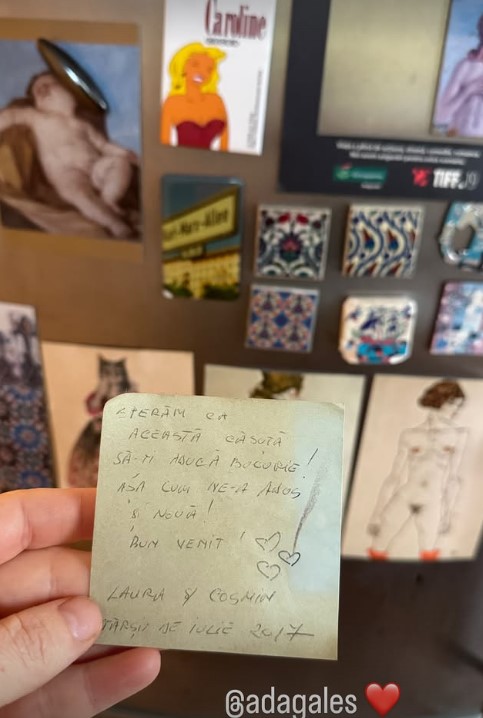 Caroline
TIFF.
Karl-Marx-Allee
SPERĂM CA
ACEASTĂ CĂSUȚĂ
SĂ-ȚI ADUCĂ BUCURIE!
AȘA CUM NE-A ADUS
ȘI NOUĂ!
BUN VENIT!
LAURA & COSMIN
TÂRȘIT DE IULIE 2017
@adagales